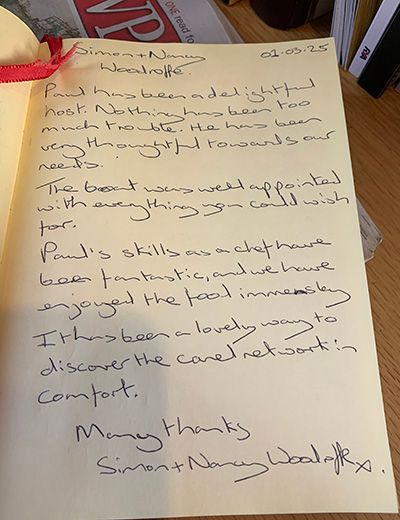 ONE read to
Simon + Nancy 01.03.25
Woodroffe.
Paul has been a delightful
host. Nothing has been too
much trouble. He has been
very thoughtful towards our
needs.
The boat was well appointed
with everything you could wish
for.
Paul's skills as a chef have
been fantastic, and we have
enjoyed the food immensley
It has been a lovely way to
discover the canal network in
comfort.
Many thanks
Simon + Nancy Woodroffe x.